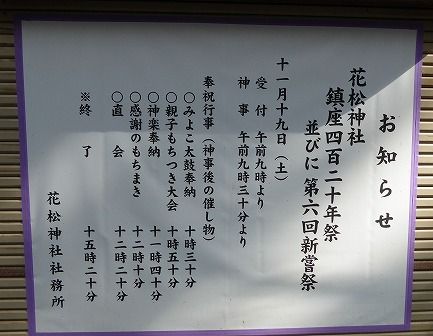 お知らせ
花松神社
鎮座四百二十年祭
並びに第六回新嘗祭
十一月十九日（土）
受付 午前九時より
神事 午前九時三十分より
奉祝行事（神事後の催し物）
○みよこ太鼓奉納 十時三十分
○親子もちつき大会 十時五十分
○神楽奉納 十一時四十分
○感謝のもちまき 十二時十分
○直会 十二時二十分
※終了 十五時二十分
花松神社社務所